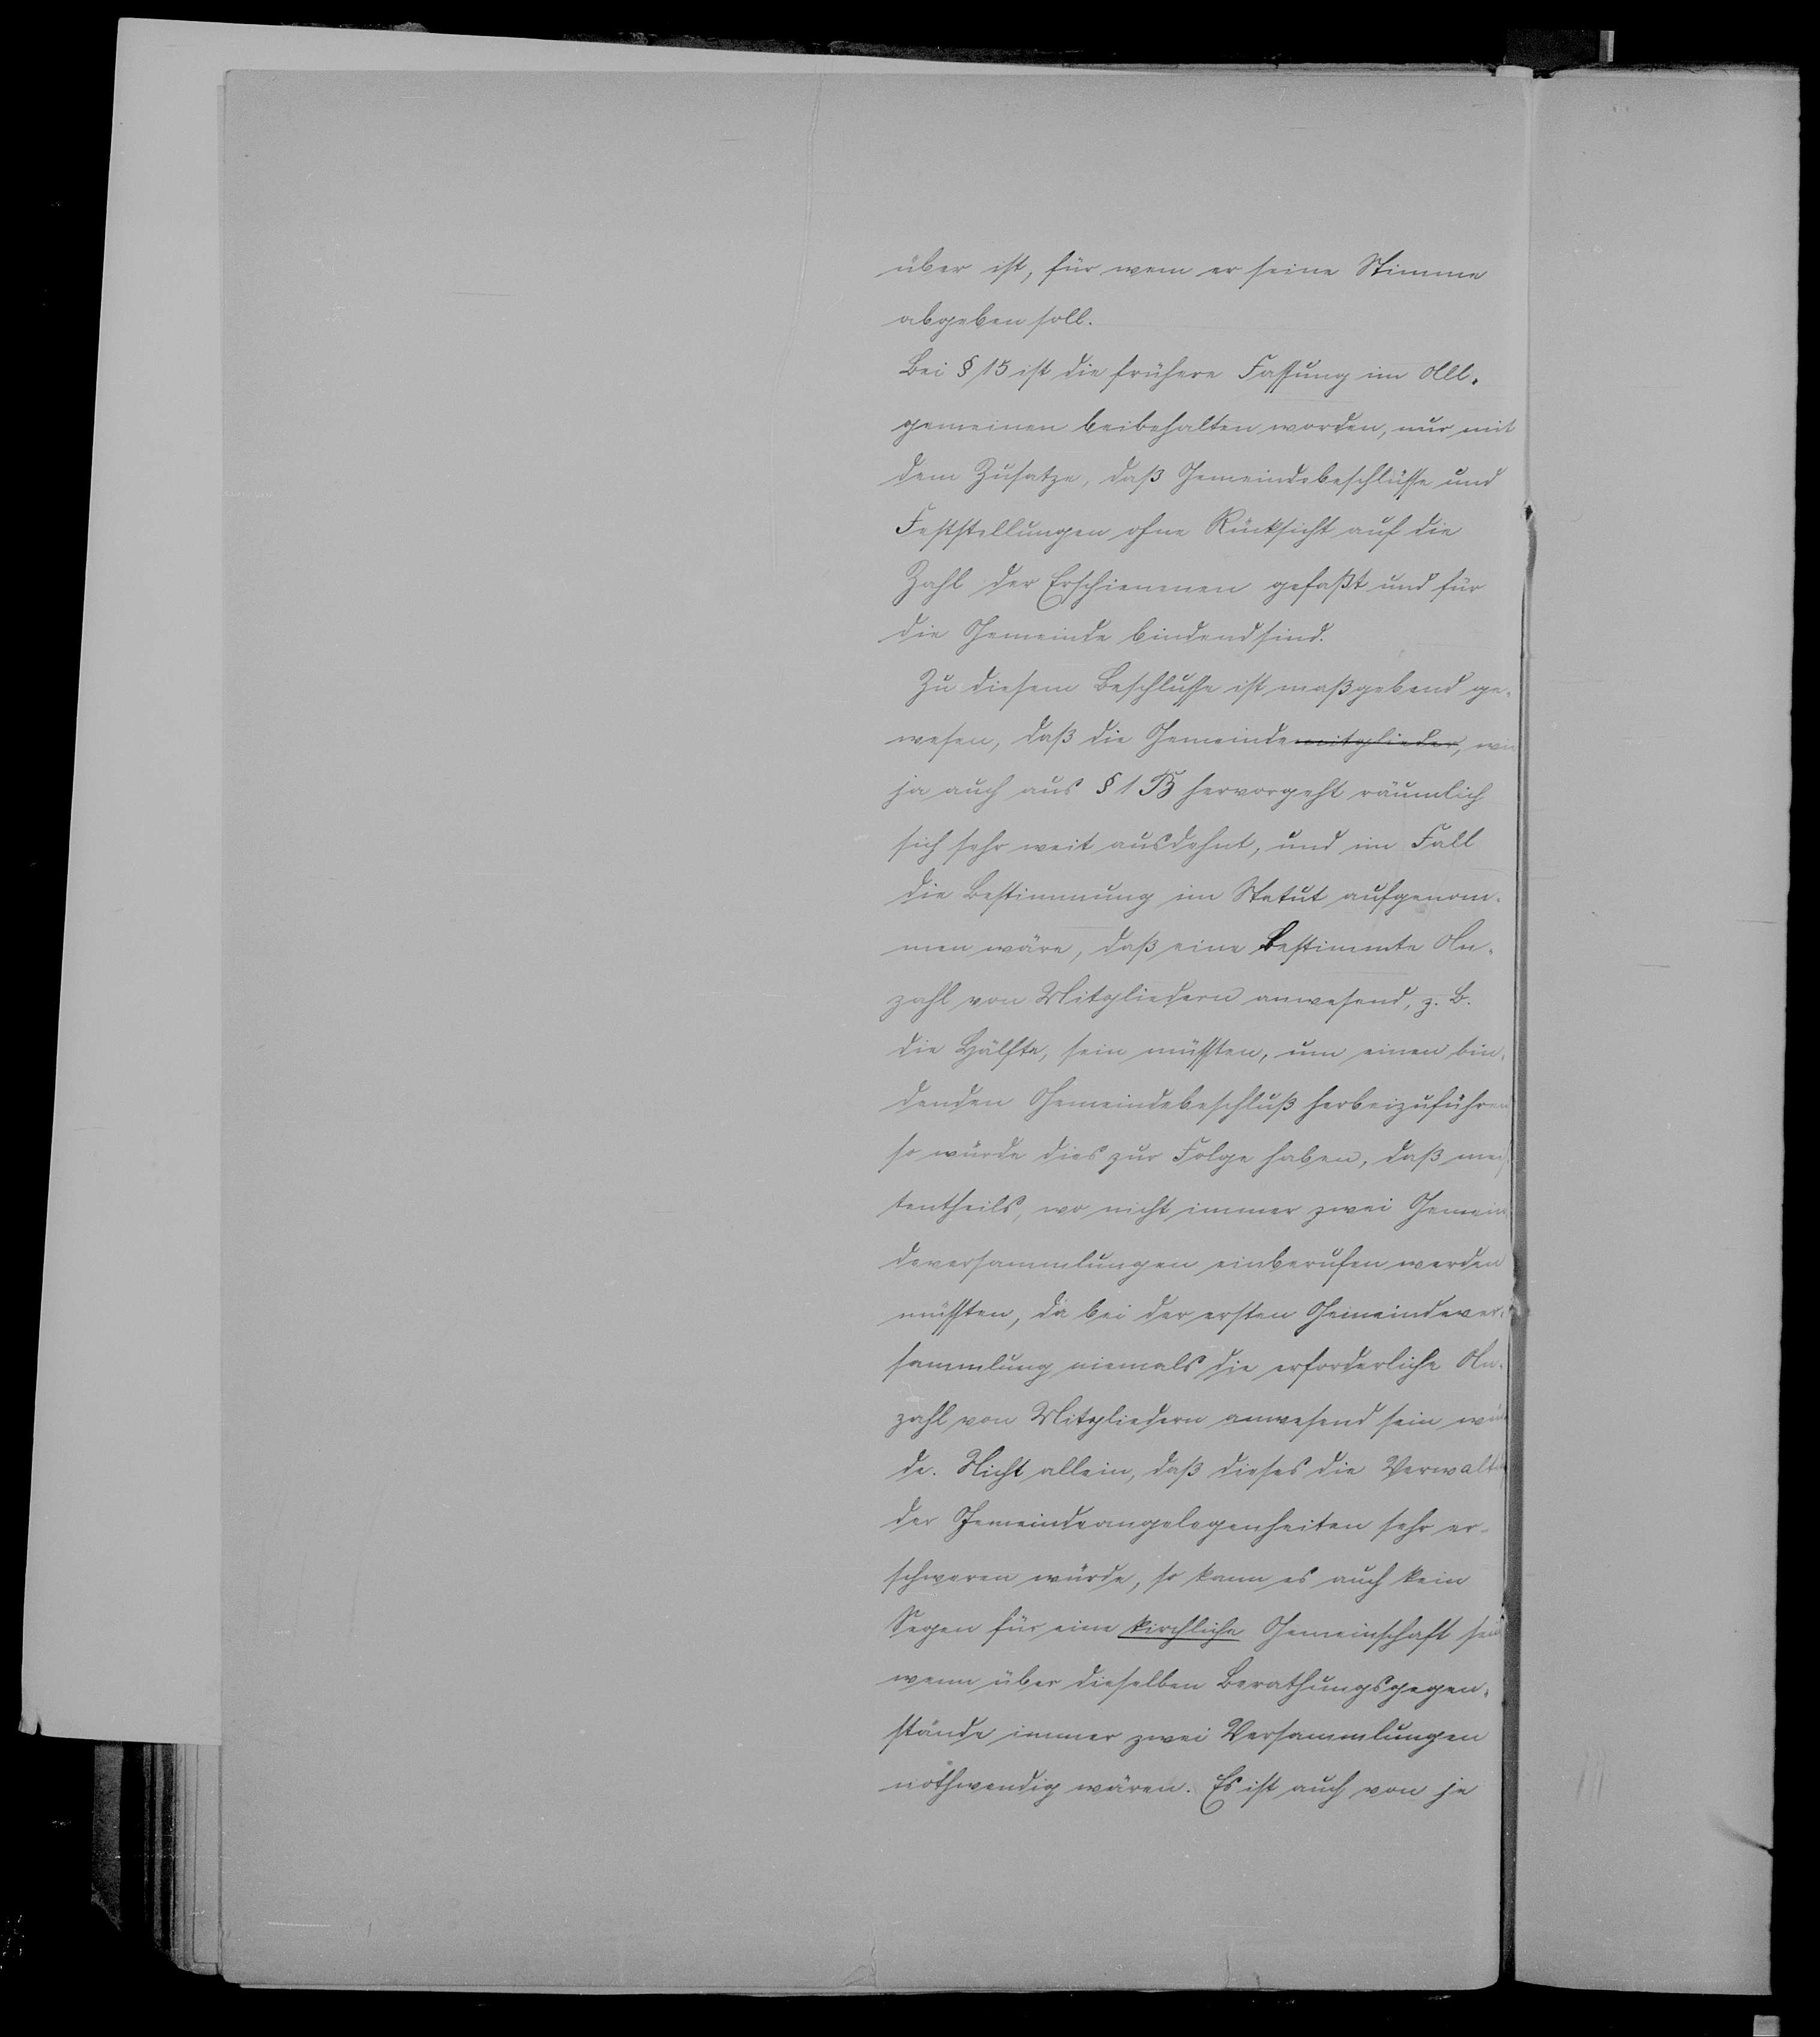 über ist, für wem er seine Stimme
abgeben soll.
Bei § 15 ist die frühere Fassung im All-
gemeinen beibehalten worden, nur mit
dem Zusatze, daß Gemeindebeschlüsse und
Feststellungen ohne Rücksicht auf die
Zahl der Erschienenen gefaßt und für
die Gemeinde bindend sind.
Zu diesem Beschlusse ist maßgebend ge-
wesen, daß die Gemeindemitglieder, wie
ja auch aus § 1 B hervorgeht räumlich
sich sehr weit ausdehnt, und im Fall
die Bestimmung im Statut aufgenom-
men wäre, daß eine bestimmte An-
zahl von Mitgliedern anwesend, z. B.
die Hälfte, sein müßten, um einen bin-
denden Gemeindebeschluß herbeizuführen
so würde dies zur Folge haben, daß meis
tentheils, wo nicht immer zwei Gemein
deversammlungen einberufen werden
müßten, da bei der ersten Gemeindever-
sammlung niemals die erforderliche An-
zahl von Mitgliedern anwesend sein wür
de. Nicht allein, daß dieses die Verwaltung
der Gemeindeangelegenheiten sehr er-
schweren würde, so kann es auch kein
Segen für eine kirchliche Gemeinschaft sein
wenn über dieselben Berathungsgegen-
stände immer zwei Versammlungen
nöthwendig wären. Es ist auch von je